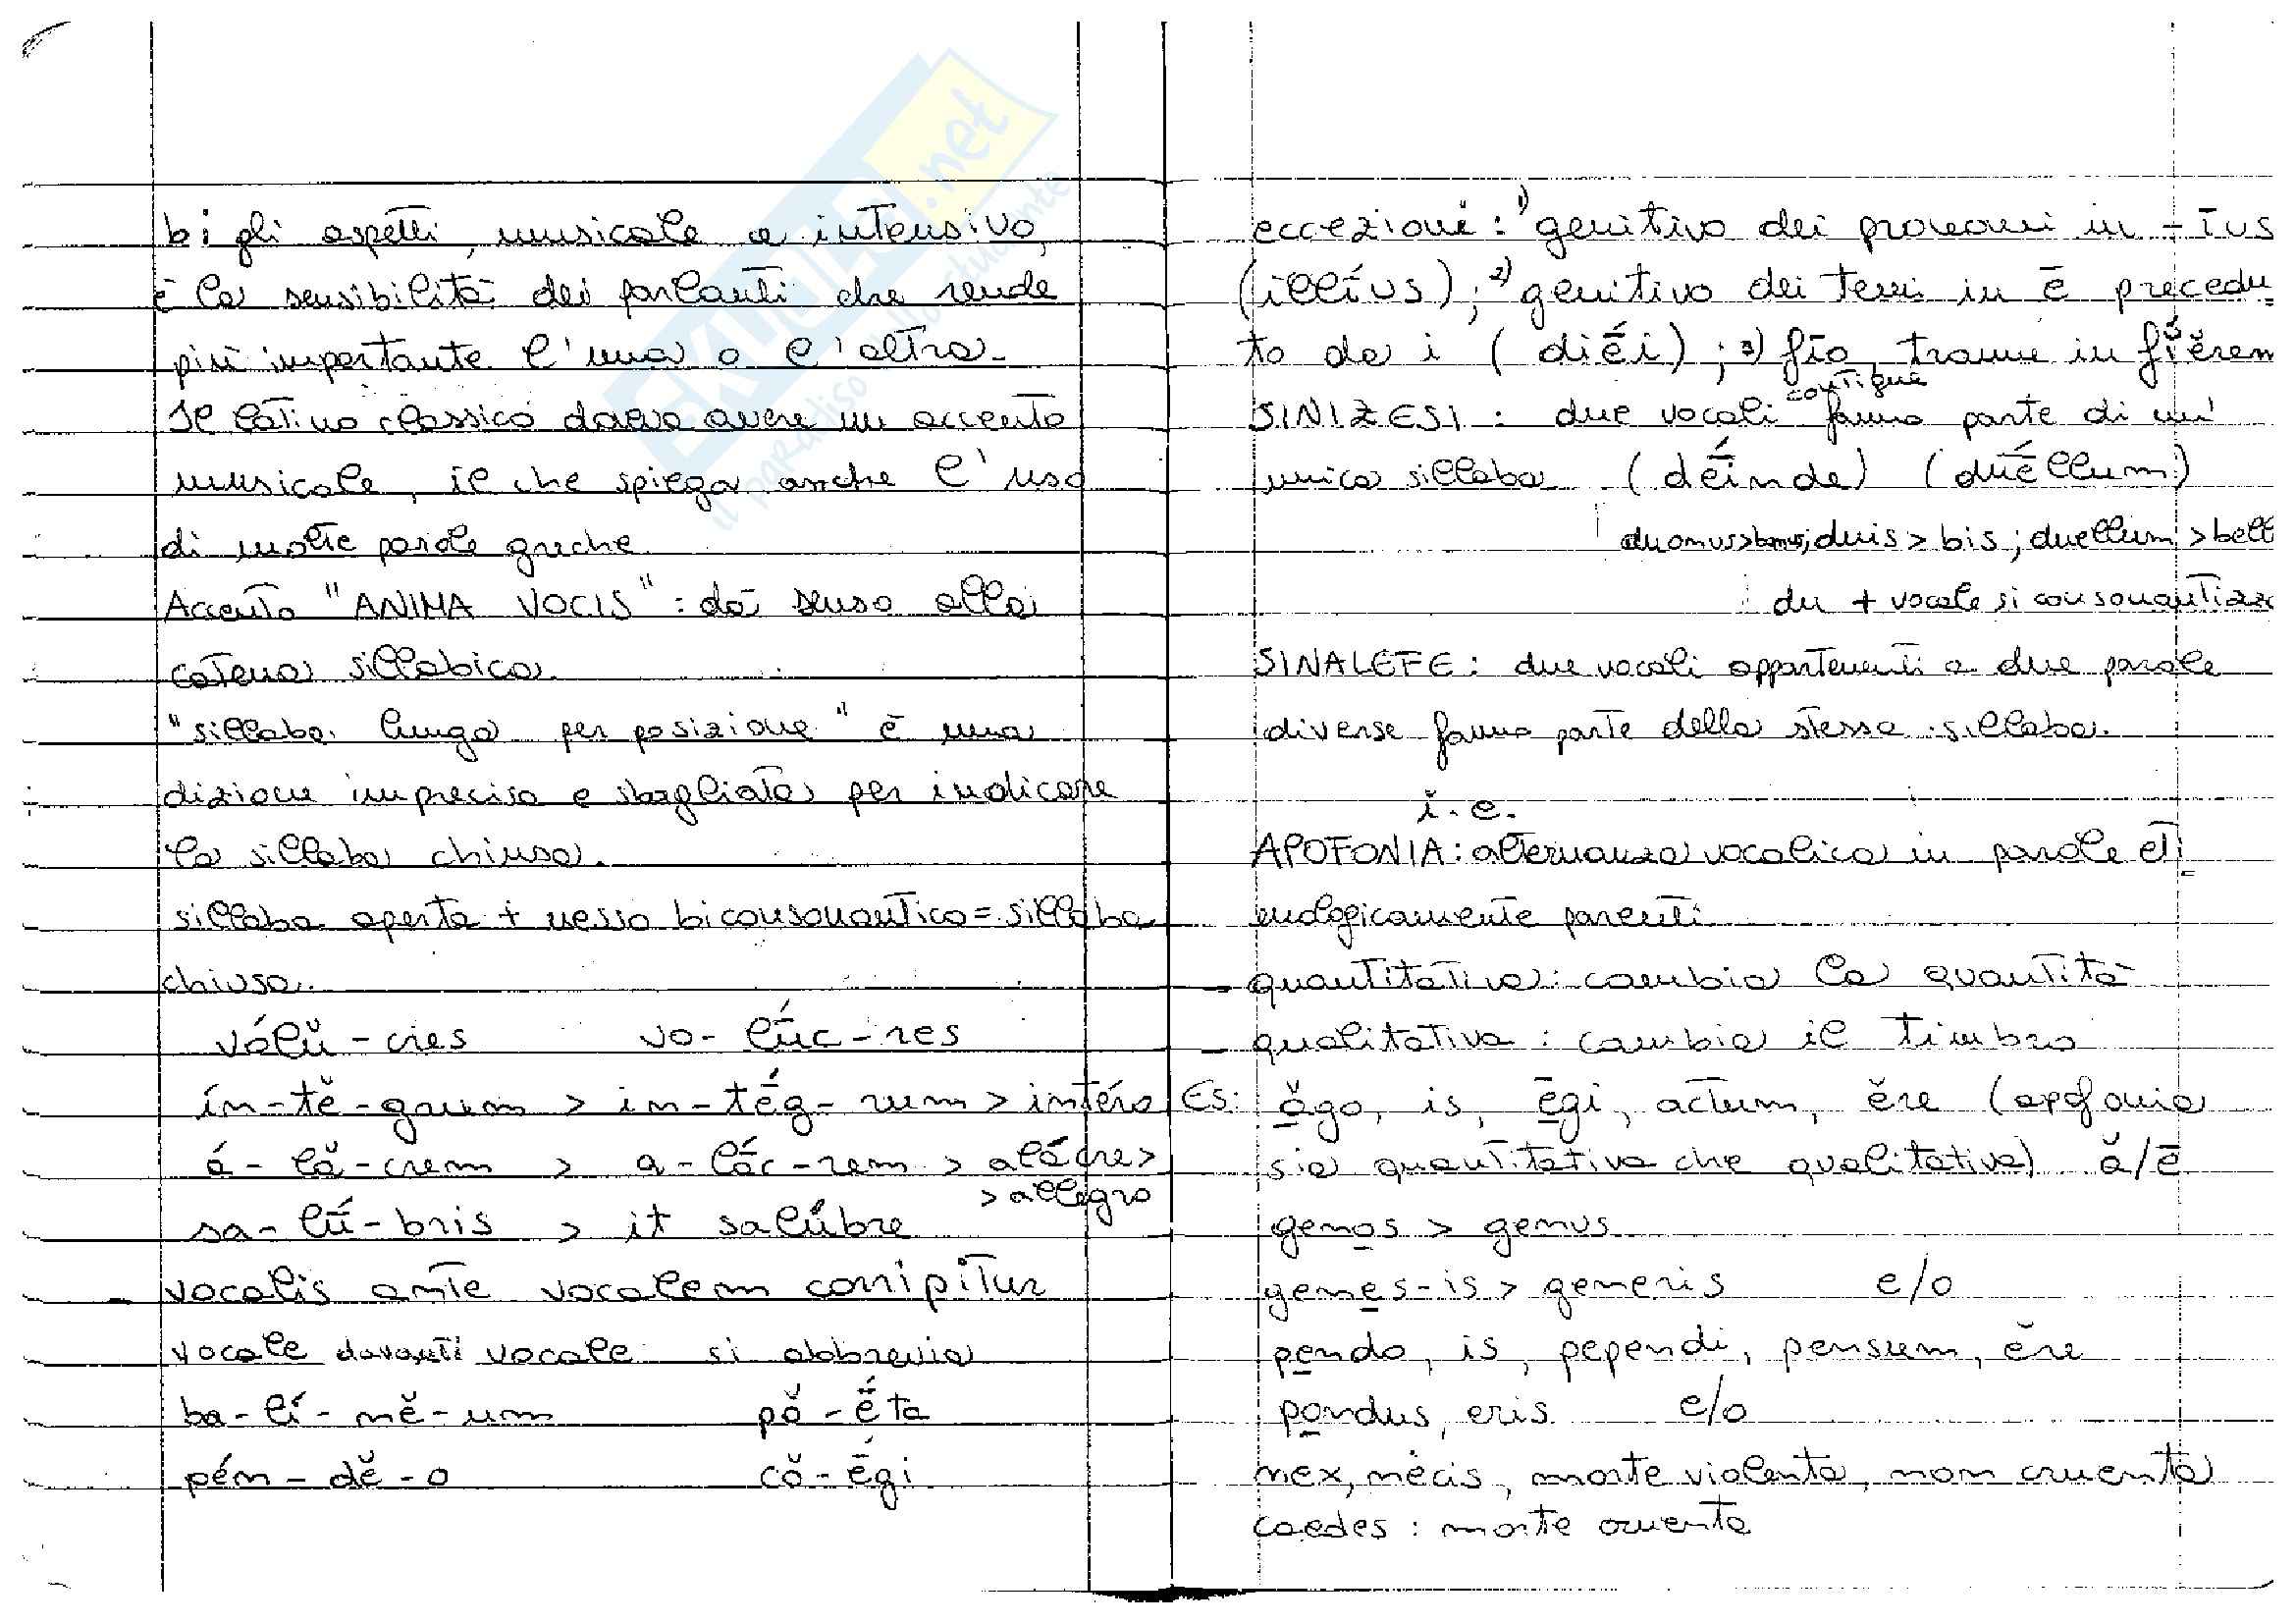 bi gli aspetti, musicale e intensivo,
è la sensibilità dei parlanti che rende
più importante l'uno o l'altro.
Il latino classico doveva avere un accento
musicale, il che spiega anche l'uso
di molte parole greche
Accento "ANIMA VOCIS": dà senso alla
catena sillabica.
"sillaba lunga per posizione" è una
dizione imprecisa e sbagliata per indicare
la sillaba chiusa.
sillaba aperta + nesso biconsonantico = sillaba
chiusa.
vólŭ-cres vo-lŭ́c-res
ín-tĕ-grum > in-tĕ́g-rum > intéro
á-lă-crem > a-lắc-rem > alácre >
> allegro
sa-lū́-bris > it salúbre
- vocalis ante vocalem corripitur
vocale davanti vocale si abbrevia
ba-lí-nĕ-um pŏ-ḗta
pén-dĕ-o cŏ-ḗgi
eccezioni: 1) genitivo dei pronomi in -īus
(illī́us); 2) genitivo dei temi in ē precedu
to da i (diḗi); 3) fīo, tranne in fĭ́ĕrem
SINIZESI: due vocali contigue fanno parte di un'
unica sillaba (déinde) (duéllum)
duonus>bonus; duis > bis; duellum > bell
du + vocale si consonantizza
SINALEFE: due vocali appartenenti a due parole
diverse fanno parte della stessa sillaba.
i.e.
APOFONIA: alternanza vocalica in parole eti
mologicamente parenti
- quantitativa: cambia la quantità
- qualitativa: cambia il timbro
ES: ăgo, is, ēgi, actum, ĕre (apofonia
sia quantitativa che qualitativa) ă/ē
genos > genus
genes-is > generis e/o
pendo, is, pependi, pensum, ĕre
pondus, eris e/o
nex, nĕcis, morte violenta, non cruenta
caedes: morte cruenta
SKUOLA.net
il paradiso dello studente